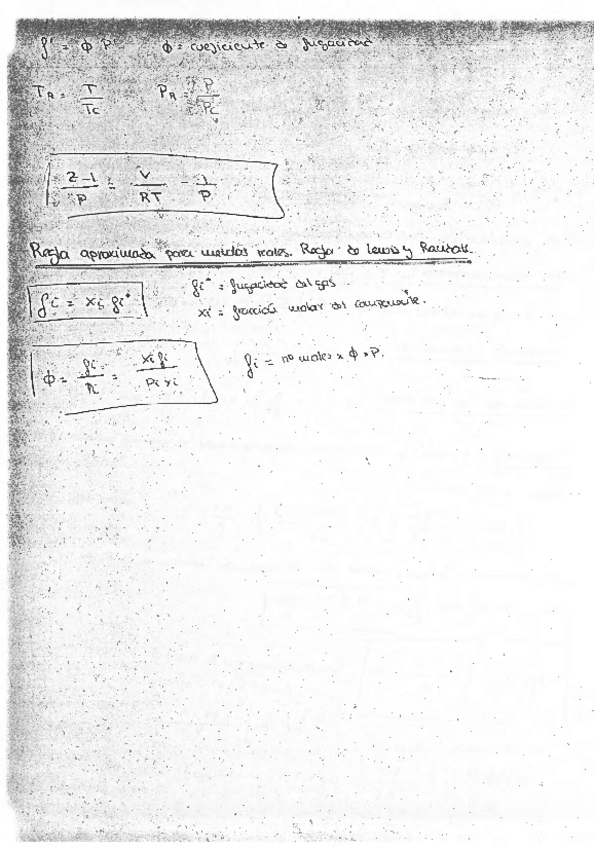 f = φ P    φ = coeficiente de fugacidad
T_R = T/Tc    P_R = P/Pc
(Z-1)/P = V/RT - 1/P
Regla aproximada para mezclas reales. Regla de Lewis y Randall.
fi = xi fi*    fi* = fugacidad del gas.
xi = fracción molar del componente.
φ = fi/Pi = xi fi/Pi xi    fi = nº moles x φ x P.